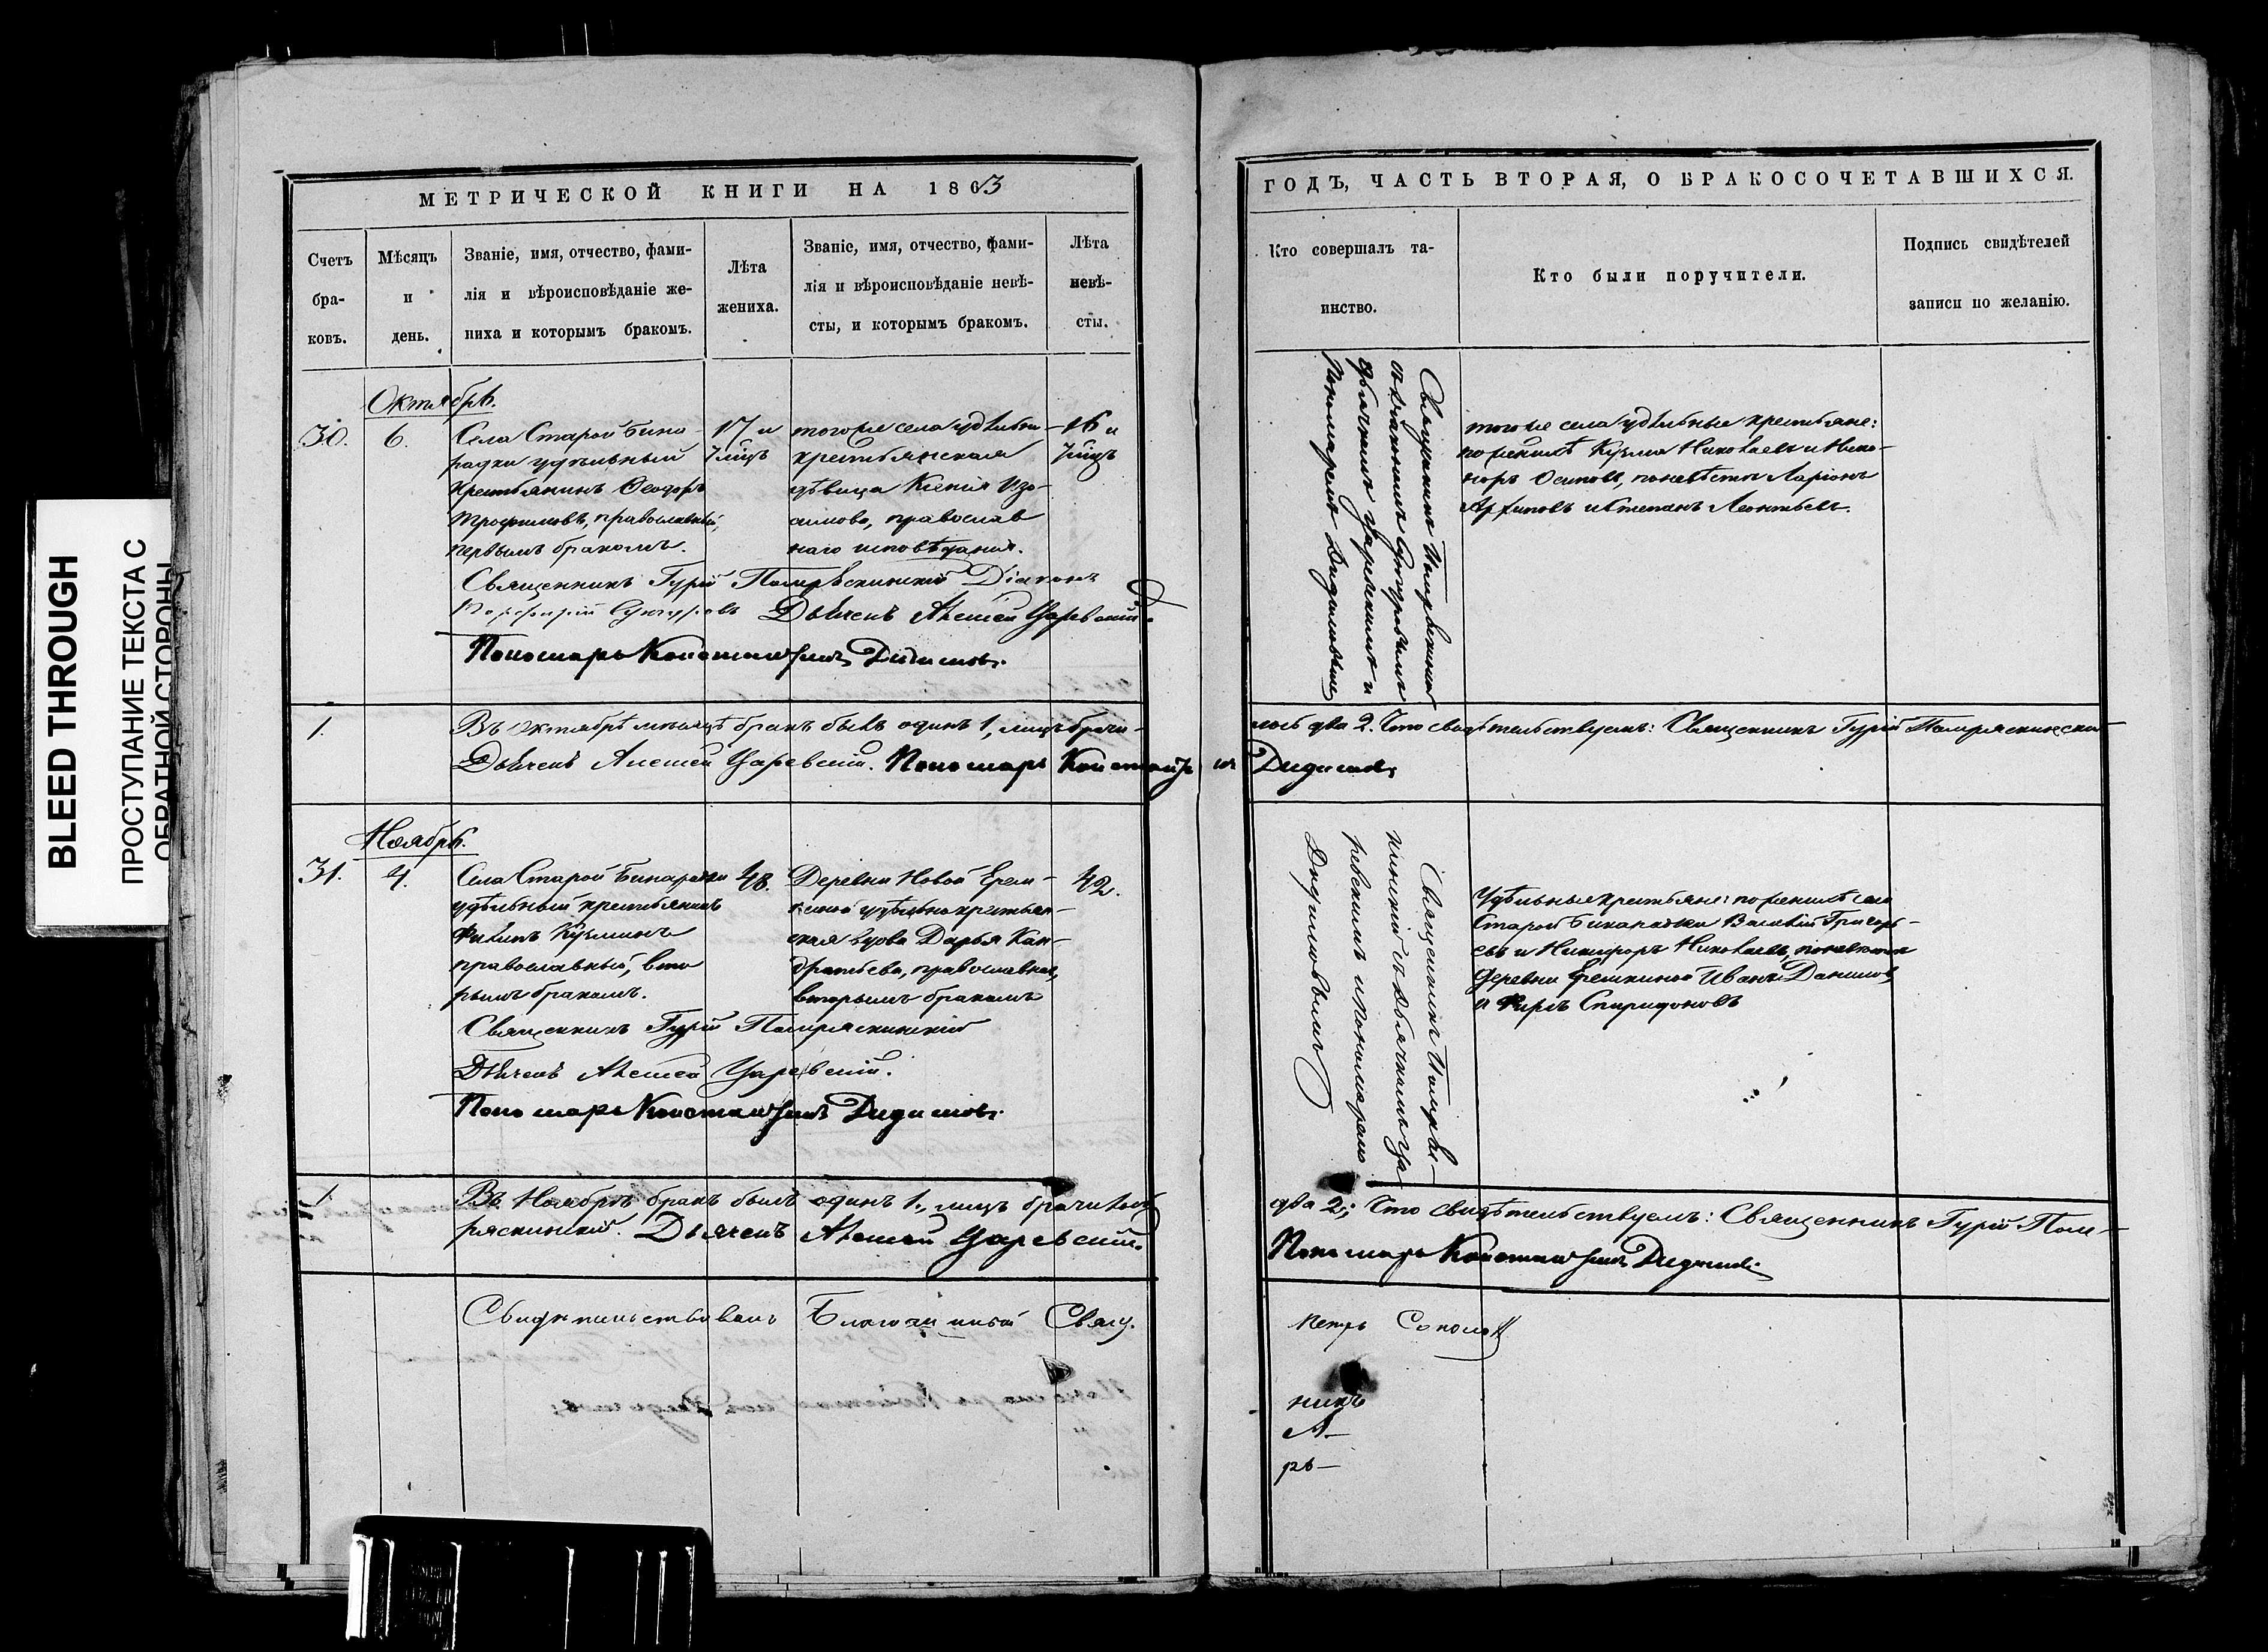 BLEED THROUGH
ПРОСТУПАНИЕ ТЕКСТА С
ОБРАТНОЙ СТОРОНЫ
МЕТРИЧЕСКОЙ КНИГИ НА 1863
Счетъ бра- ковъ.
Мѣсяцъ и день.
Званіе, имя, отчество, фами-
лія и вѣроисповѣданіе же-
ниха и которымъ бракомъ.
Лѣта
жениха.
Званіе, имя, отчество, фами-
лія и вѣроисповѣданіе невѣ-
сты, и которымъ бракомъ.
Лѣта
невѣ-
сты.
Октябрь.
30.
6.
Села Старой Бина-
радки удѣльный
крестьянинъ Ѳеодоръ
Трофимовъ, православный,
первымъ бракомъ.
17 и
7 мцъ
тогоже села удѣльн-
крестьянская
дѣвица Ксенія Изо-
симова, православ
наго исповѣданія.
16 и
7 мцъ
Священникъ Гурій Помряскинскій Діаконъ
Дьячекъ Алексей Царевскій.
Пономарь Константинъ Дидимовъ.
1.
Въ Октябрѣ мѣсяцѣ бракъ былъ одинъ 1, лицъ брачи-
Дьячекъ Алексей Царевскій. Пономарь Константинъ
Ноябрь.
31.
4.
Села Старой Бинарадки
удѣльный крестьянинъ
Филипъ Кузминъ
православный, вто
рымъ бракомъ.
48.
Деревни Новой Ерем-
киной удѣльно крестьян-
ская вдова Дарья Кан-
дратьева, православная,
вторымъ бракомъ
42.
Священникъ Гурій Помряскинскій
Дьячекъ Алексей Царевскій.
Пономарь Константинъ Дидимовъ.
1.
Въ Ноябрѣ бракъ былъ одинъ 1., лицъ брачилось
ряскинскій. Дьячекъ Алексей Царевскій.
Свидѣтельствовалъ Благочинный Свящ.
ГОДЪ, ЧАСТЬ ВТОРАЯ, О БРАКОСОЧЕТАВШИХСЯ.
Кто совершалъ та-
инство.
Кто были поручители.
Подпись свидѣтелей
записи по желанію.
Священникъ Помряскинскій
съ діакономъ
дьячкомъ Царевскимъ и
Пономаремъ Дидимовымъ
тогоже села удѣльные крестьяне:
по женихѣ Кузма Николаевъ и Ника-
норъ Осиповъ, по невѣстѣ Ларіонъ
Архиповъ и Степанъ Леонтьевъ.
лось два 2. Что свидѣтельствуемъ: Священникъ Гурій Помряскинскій
Дидимовъ
Священникъ Помря-
скинскій съ дьячкомъ Ца
ревскимъ и Пономаремъ
Дидимовымъ
Удѣльные крестьяне: по женихѣ села
Старой Бинарадки Василій Григорь-
евъ и Никифоръ Николаевъ, по невѣстѣ
деревни Еремкиной Иванъ Даниловъ,
и Фирсъ Спиридоновъ
два 2; Что свидѣтельствуемъ: Священникъ Гурій Пом-
Пономарь Константинъ Дидимовъ.
Петръ Соколов
никъ
А-
рь-